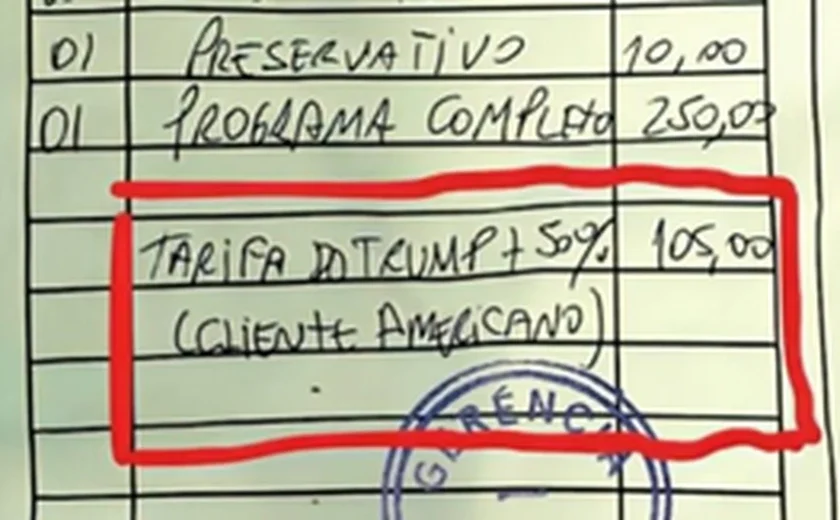 01 PRESERVATIVO 10,00
01 PROGRAMA COMPLETO 250,00
TARIFA DO TRUMP + 50% 105,00
(CLIENTE AMERICANO)
GERENCIA